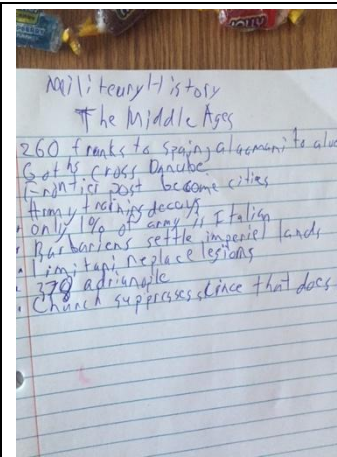 Military History
The Middle Ages
260 franks to Spain, alaemani to
Goths cross Danube
Frontier post become cities
Army training decays
only 1% of army is Italian
Barbariens settle imperiel lands
limitani replace legions
378 adrianople
Church suppresses that does